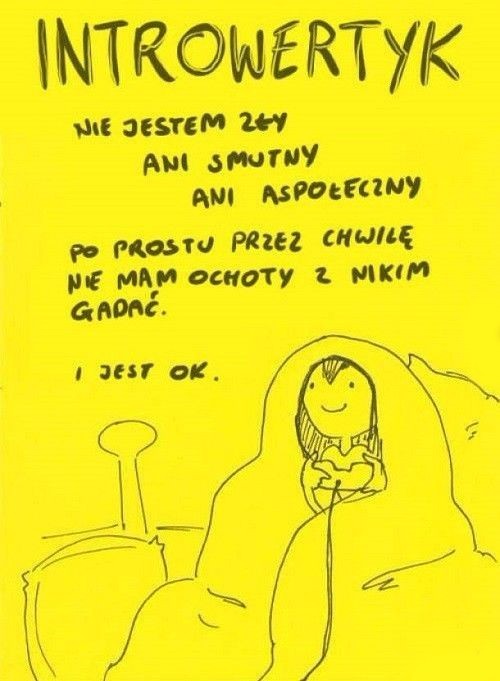 INTROWERTYK
NIE JESTEM ZŁY
ANI SMUTNY
ANI ASPOŁECZNY
PO PROSTU PRZEZ CHWILĘ
NIE MAM OCHOTY Z NIKIM
GADAĆ.
I JEST OK.